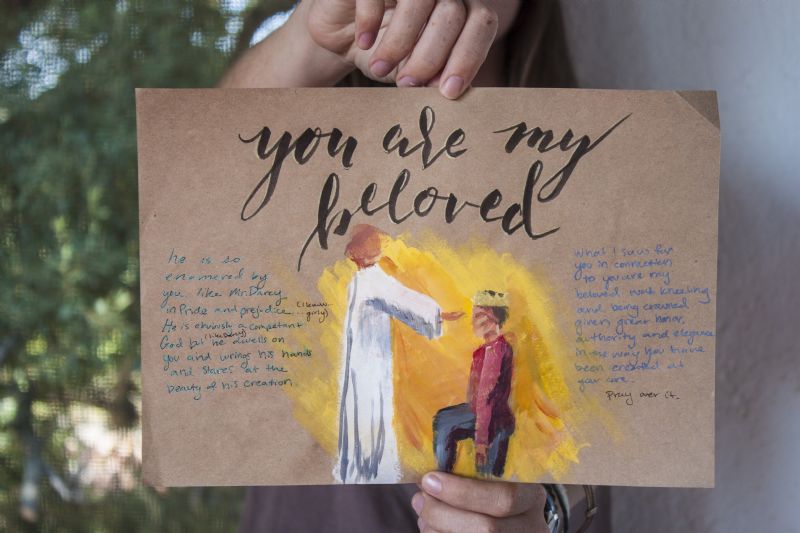 you are my
beloved
he is so
enamored by
you. like Mr. Darcy
in Pride and prejudice (I know... girly)
He is a competant
God but he dwells on
you and wrings his hands
and stares at the
beauty of his creation.
What I saw for
you in connection
to you are my
beloved was kneeling
and being crowned
given great honor,
authority and elegance
in the way you have
been created at
your core.
Pray over it.